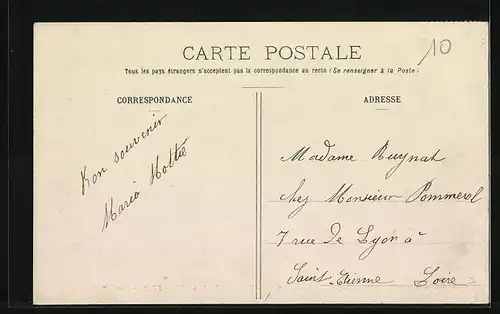 10
CARTE POSTALE
Tous les pays étrangers n'acceptent pas la correspondance au recto (Se renseigner à la Poste)
CORRESPONDANCE
Bon souvenir
Maria
ADRESSE
Madame Ruynat
chez Monsieur Pommerol
7 rue de Lyon à
Saint-Etienne Loire